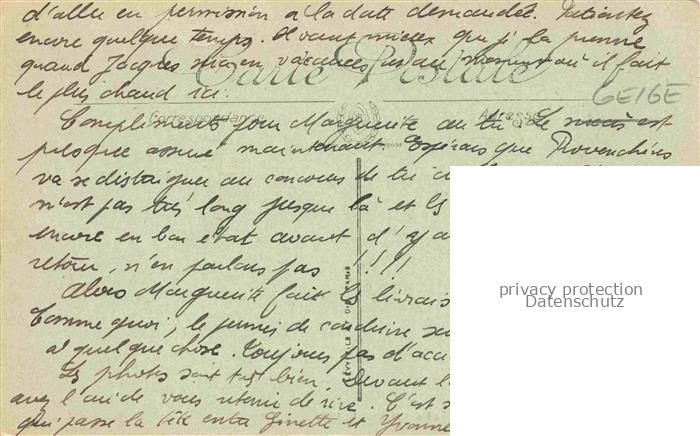 d'aller en permission à la date demandée. Patientez
encore quelque temps. Il vaut mieux que j' la prenne
quand Jacques sera en vacances au moment où il fait
Carte Postale
le plus chaud ici.
GEIGE
Correspondance
Adresse
Compliments pour Marguerite au tir. Le succès est
presque assuré maintenant. Espérons que Provenchères
va se distinguer au concours de tir
n'est pas très long jusque là et les
encore en bon état avant d'y
retour, n'en parlons pas !!!!
LÉVY FILS DE PARIS
privacy protection
Datenschutz
Alors Marguerite fait les livrais
Comme quoi, le permis de conduire
à quelque chose. Toujours pas d'acc
Les photos sont très bien. Devant l
avez l'air de vous retenir de rire. C'est
qui passe la tête entre Ginette et Yvonne